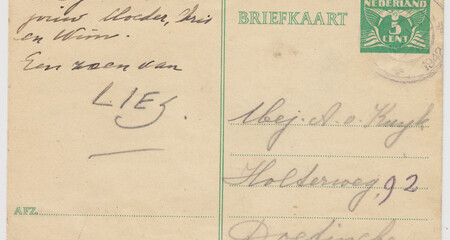 jouw Moeder, Iris
en Wim.
Een zoen van
LIES.
AFZ.
BRIEFKAART
NEDERLAND
5
CENT
Mej. A. v. Kuyk
Holterweg, 92